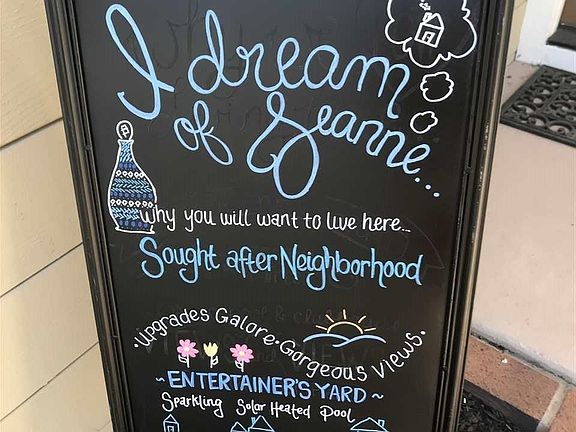 I dream
of Jeanne...
Why you will want to live here...
Sought after Neighborhood
·Upgrades Galore·Gorgeous Views·
~ENTERTAINER'S YARD~
Sparkling Solar Heated Pool